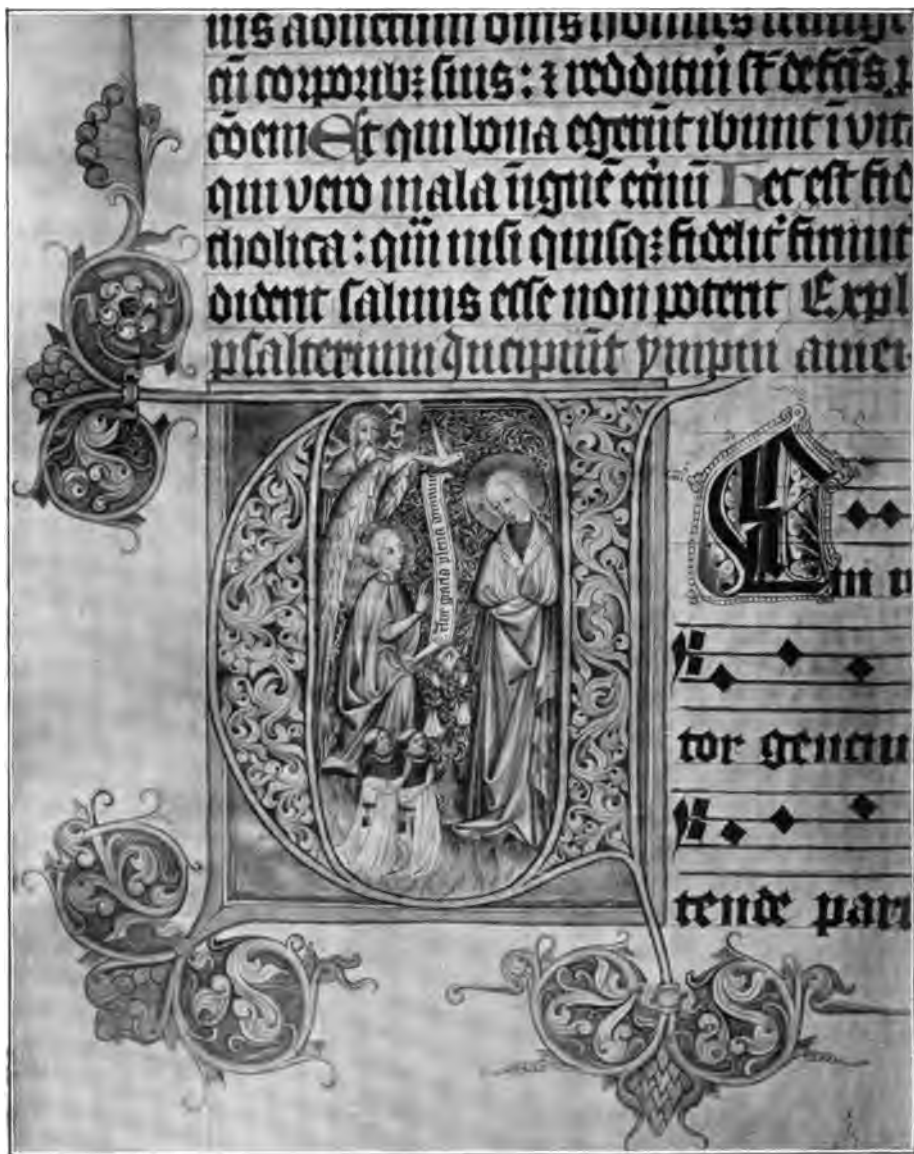 ius homines
cū corporibꝫ suis : ⁊ reddituri st̄ de fc̄is p
cōem Et qui bona egerūt ibunt ī vita
qui vero mala ī ignē et̄nū Hec est fid
tholica : quā nisi quisqꝫ fidelit͛ firmit
diderit saluus esse non poterit Expl
psalterium Incipiūt ympni
gracia plena dominus
tor genciu
tende pari